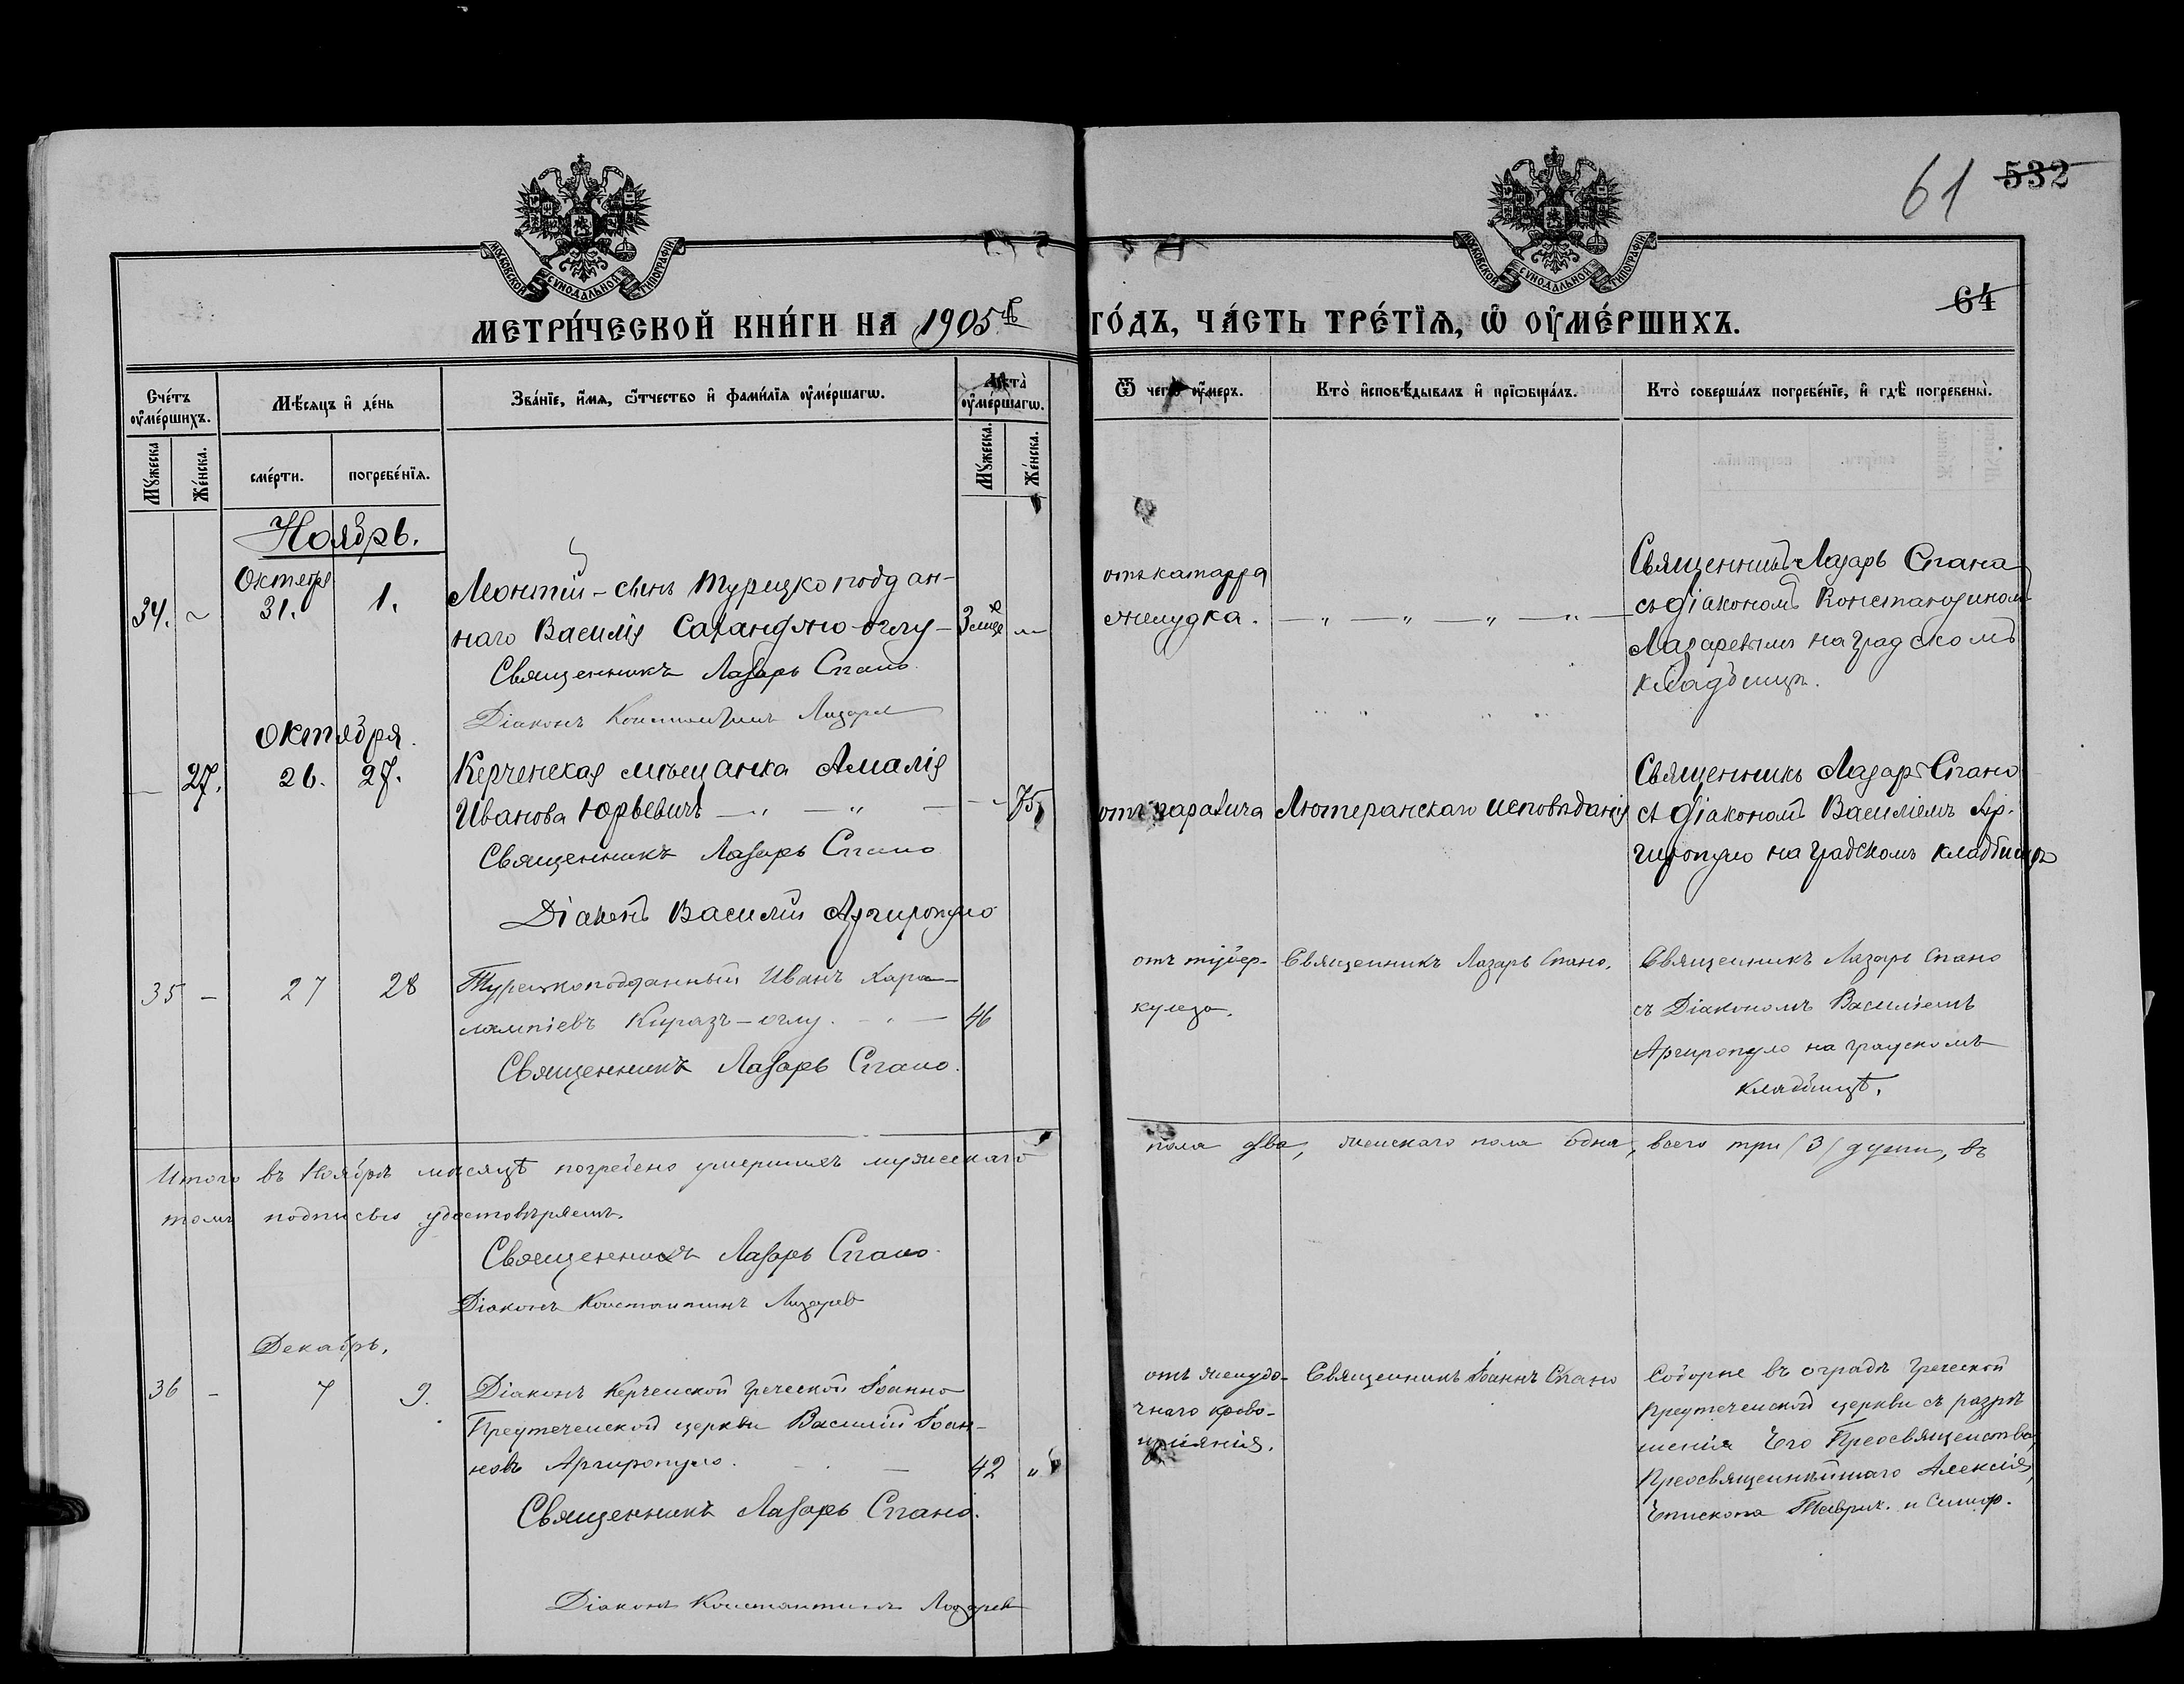 61 532
МОСКОВСКОЙ СѴНОДАЛЬНОЙ ТИПОГРАФІИ
МОСКОВСКОЙ СѴНОДАЛЬНОЙ ТИПОГРАФІИ
64
МЕТРИ́ЧЕСКОЙ КНИ́ГИ НА 1905й ГО́ДЪ, ЧА́СТЬ ТРЕ́ТЇѦ, Ѽ ОУ҆МЕ́РШИХЪ.
Сче́тъ оу҆ме́ршихъ.
Мѣ́сяцъ и҆ де́нь
Зва́нїе, и҆́мѧ, ѻ҆́тчество и҆ фами́лїѧ оу҆ме́ршагѡ.
Лѣ̀та̀ оу҆ме́ршагѡ.
Ѿ чегѡ̀ оу҆́меръ.
Кто̀ и҆сповѣ́дывалъ и҆ прїѡбща́лъ.
Кто̀ соверша́лъ погребе́нїе, и҆ гдѣ̀ погребены̀.
Мꙋ́жеска
Же́нска.
сме́рти.
погребе́нїѧ.
Мꙋ́жеска.
Же́нска.
Ноябрь.
34. ~ Октября 31. 1.
Леонтій - сынъ Турецкоподдан-
наго Василія Саранджо-оглу - 3 мѣс.
Священникъ Лазарь Спано.
Діаконъ Константинъ Лазарев
отъ катарра
желудка.
Священникъ Лазарь Спано
съ діакономъ Константиномъ
Лазаревымъ на градскомъ
кладбищѣ.
Октября.
— 27. 26. 27.
Керченская мѣщанка Амалія
Иванова Юрьевичъ — „ — „ — 75
Священникъ Лазарь Спано
Діаконъ Василій Аргиропуло
отъ паралича
Лютеранскаго исповѣданія
Священникъ Лазарь Спано
съ діакономъ Василіемъ Ар-
гиропуло на градскомъ кладбищѣ
35 - 27 28
Турецкоподданный Иванъ Хара-
лампіевъ Кираз-оглу. — 46
Священникъ Лазарь Спано.
отъ тубер-
кулеза.
Священникъ Лазарь Спано.
Священникъ Лазарь Спано
съ Діакономъ Василіемъ
Аргиропуло на градскомъ
кладбищѣ.
Итого въ Ноябрѣ мѣсяцѣ погребено умершихъ мужескаго пола два, женскаго пола одна, всего три (3) души, въ
томъ подписью удостовѣряемъ.
Священникъ Лазарь Спано.
Діаконъ Константинъ Лазарев
Декабрь.
36 - 7 9.
Діаконъ Керченской Греческой Іоанно
Предтеченской церкви Василій Іоан-
новъ Аргиропуло. — 42 „
Священникъ Лазарь Спано.
Діаконъ Константинъ Лазарев
отъ желудо-
чнаго крово-
изліянія.
Священникъ Іоаннъ Спано
Соборне въ оградѣ Греческой
Предтеченской церкви съ разрѣ
шенія Его Преосвященства,
Преосвященнѣйшаго Алексія,
Епископа Таврич. и Симф.